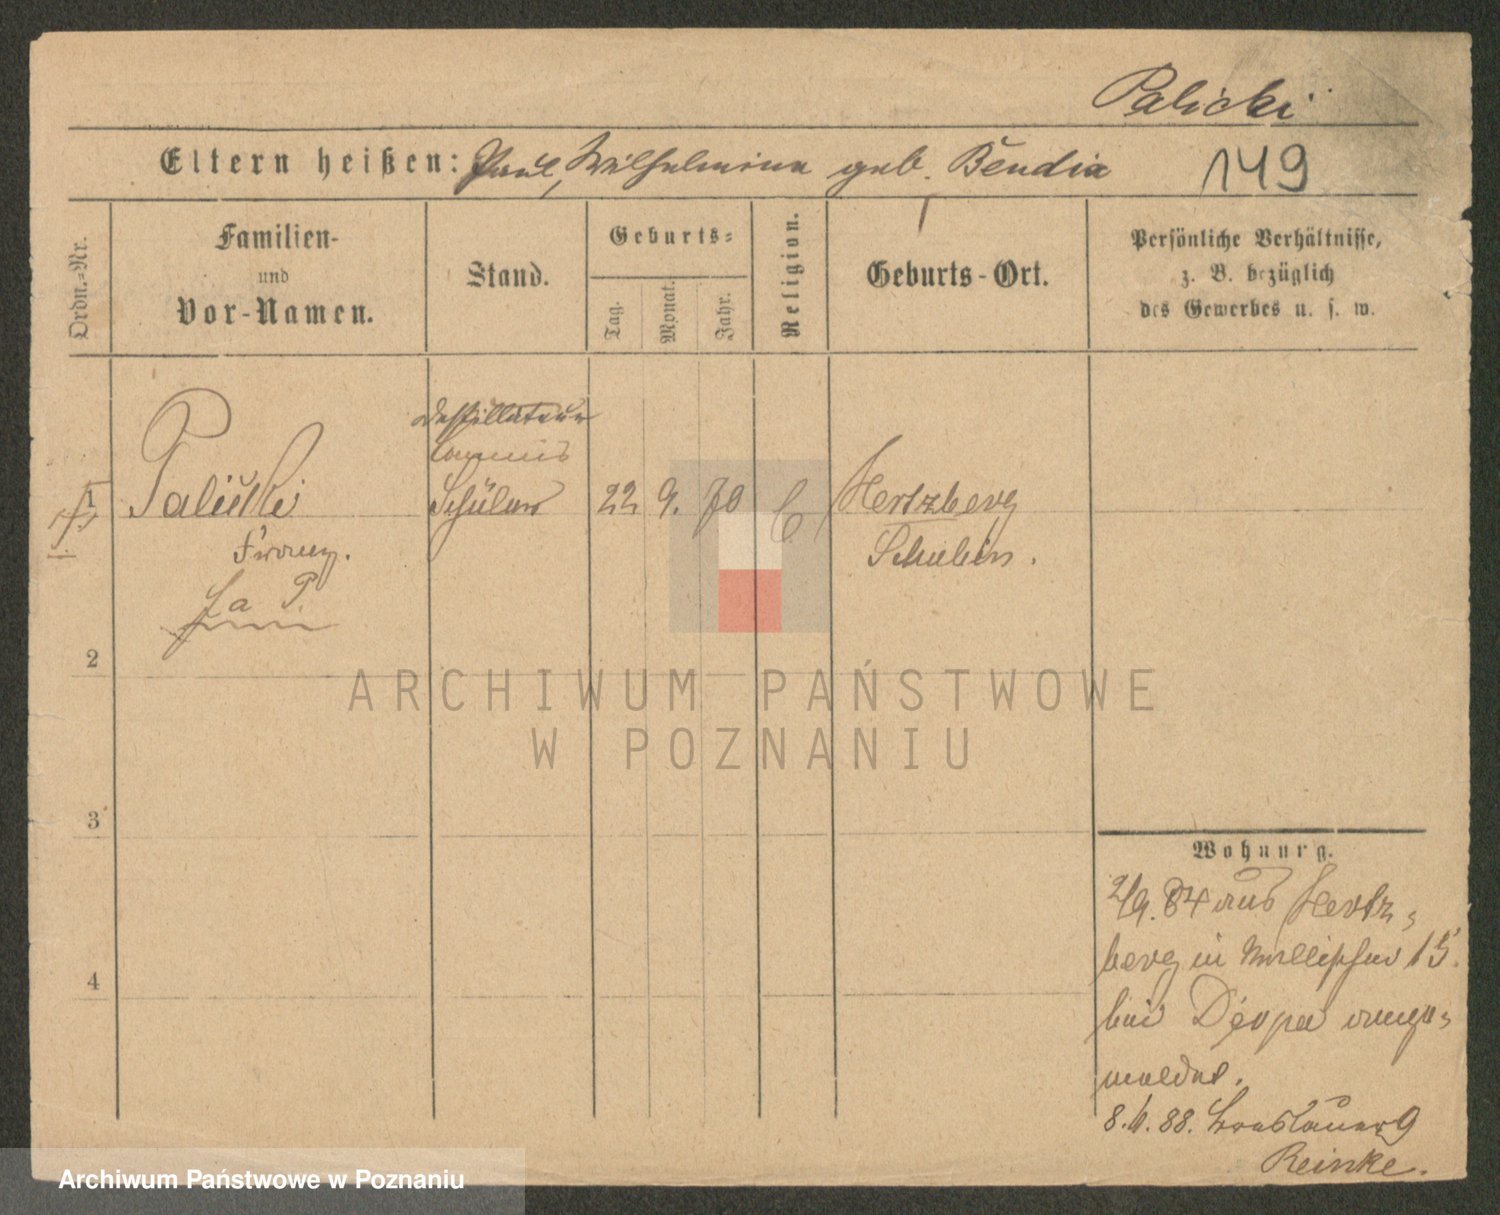 Palicki
Eltern heißen: Paul, Wilhelmina geb. Bendia
149
Ordn.-Nr.
Familien-
und
Vor-Namen.
Stand.
Geburts-
Tag.
Monat.
Jahr.
Religion.
Geburts-Ort.
Persönliche Verhältnisse,
z. B. bezüglich
des Gewerbes u. s. w.
Destillateur
Commis
1 Palicki Schüler 22 9. 70 C Hertzberg
Franz. Schubin.
2
3
4
ARCHIWUM PAŃSTWOWE
W POZNANIU
Wohnung.
2/9. 84 aus Hertz-
berg in Wallischei 15.
bei ange-
meldet.
8. 88. Breslauer 9
Reinke.
Archiwum Państwowe w Poznaniu